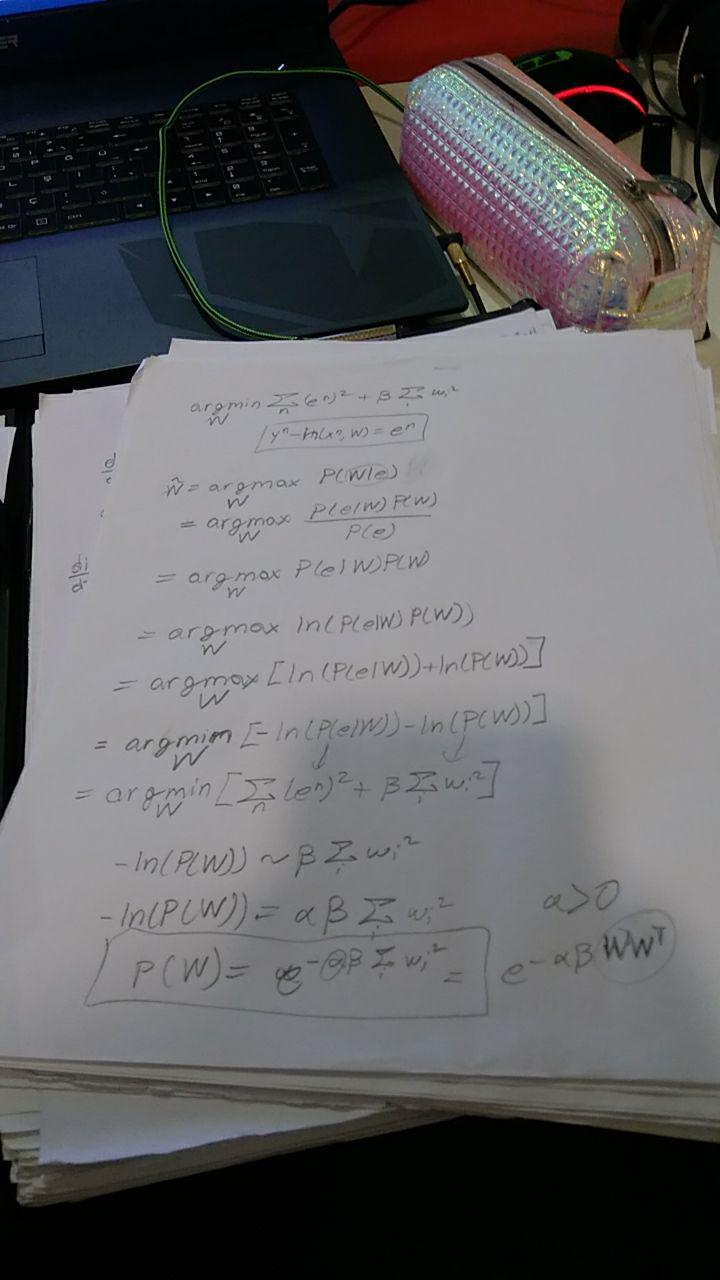 argmin_W Σ_n (eⁿ)² + β Σ_i wᵢ²
yⁿ-h(xⁿ,W) = eⁿ
W̃ = argmax_W P(W|e)
= argmax_W P(e|W)P(W) / P(e)
= argmax_W P(e|W)P(W)
= argmax_W ln(P(e|W)P(W))
= argmax_W [ln(P(e|W))+ln(P(W))]
= argmin_W [-ln(P(e|W))-ln(P(W))]
= argmin_W [Σ_n (eⁿ)² + β Σ_i wᵢ²]
-ln(P(W)) ~ β Σ_i wᵢ²
-ln(P(W)) = αβ Σ_i wᵢ² α>0
P(W) = e^(-αβ Σ_i wᵢ²) = e^(-αβ WWᵀ)